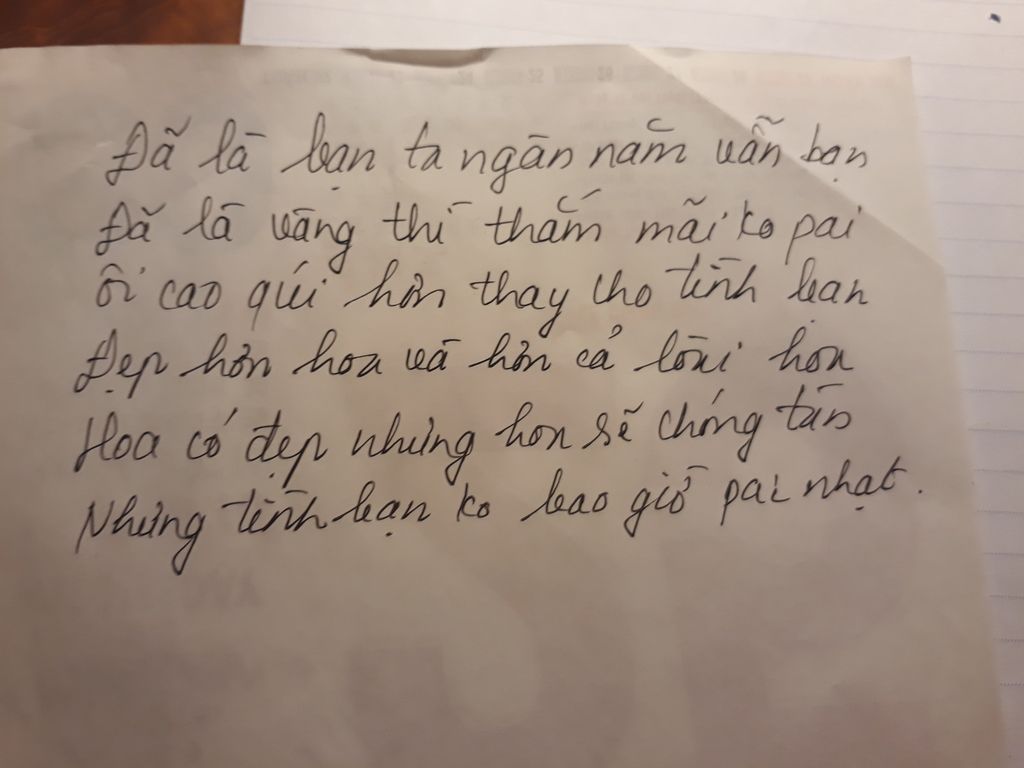 Đã là bạn ta ngàn năm vẫn bạn
Đã là vàng thì thắm mãi ko pai
Ôi cao qúi hơn thay cho tình bạn
Đẹp hơn hoa và hơn cả lòai hoa
Hoa có đẹp nhưng hoa sẽ chóng tàn
Nhưng tình bạn ko bao giờ pai nhạt.